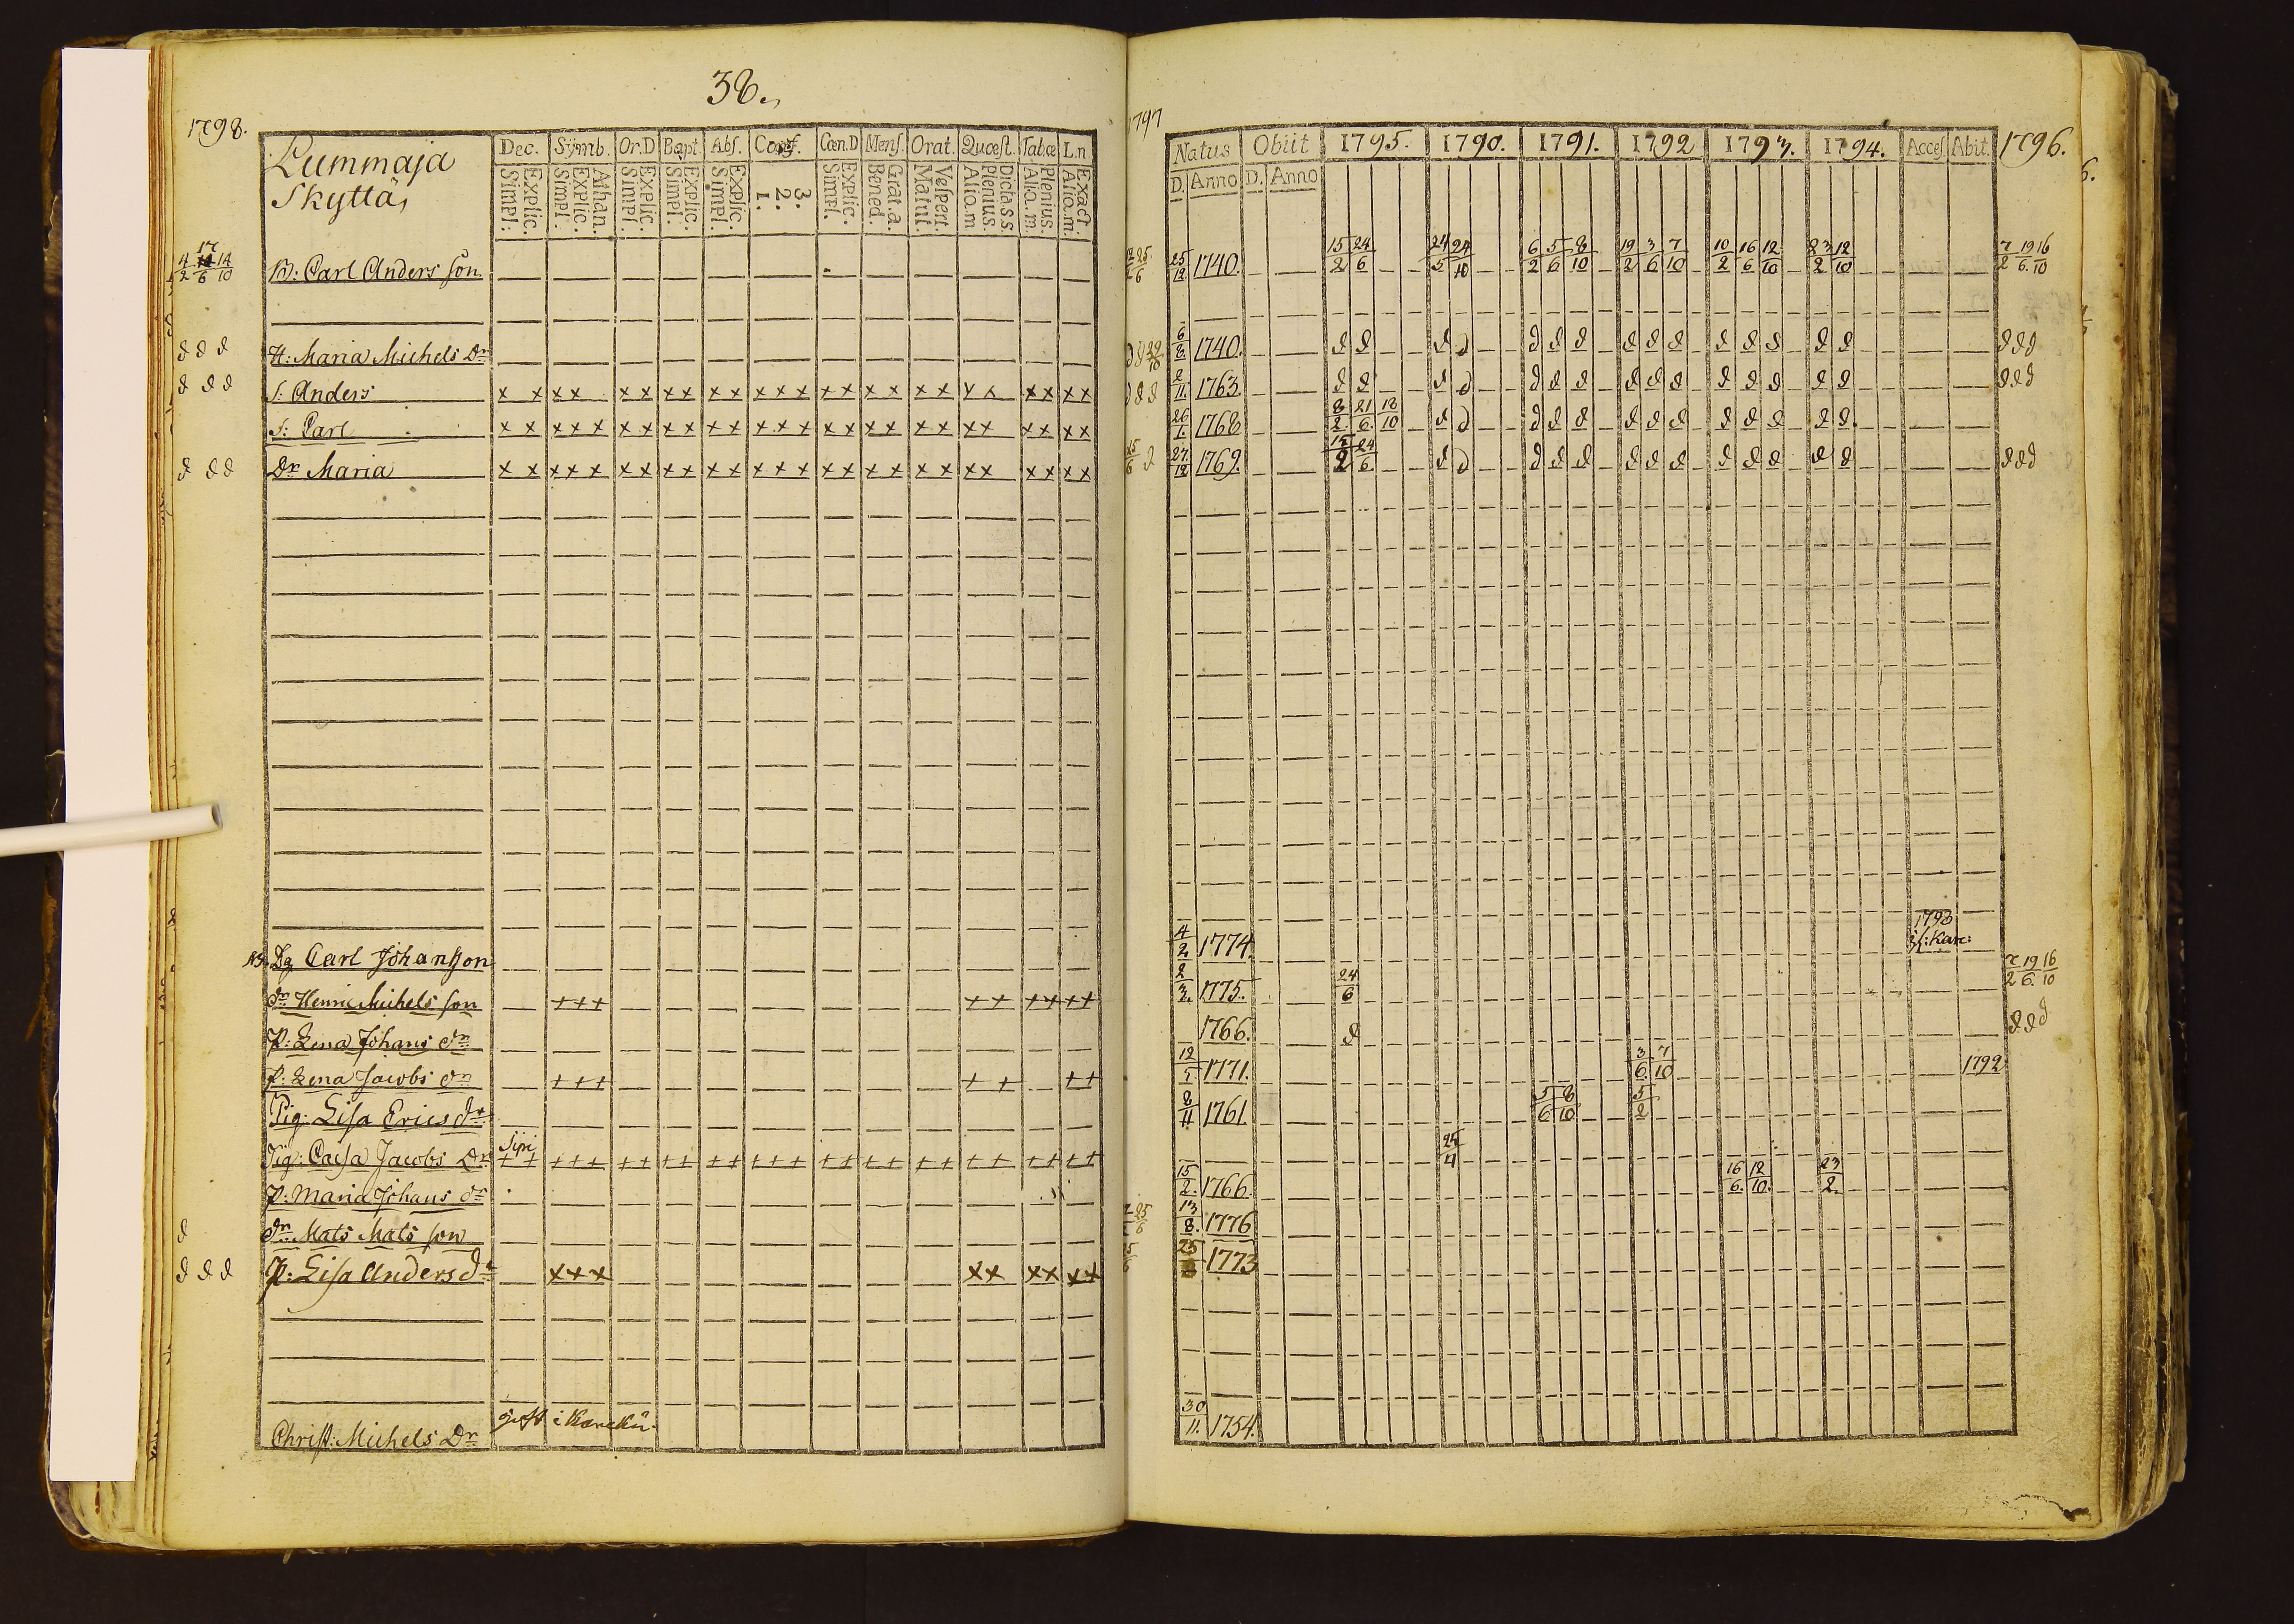 38.
1798.
Lummaja
Skyttä,
Dec. Symb. Or.D Bapt. Abs. Conf. Cœn.D Mens. Orat. Quæst. Tabæ L.n
Explic. Simpl. Athan. Explic. Simpl. Explic. Simpl. Explic. Simpl. Explic. Simpl. 3. 2. 1. Explic. Simpl. Grat.a. Bened. Vespert. Matut. Dictass Plenius. Alio.m Plenius. Alio.m. Exact. Alio.m.
4/2 17/6 14/10 B: Carl Anders son
d d d H: Maria Michels Dr
d d d S: Anders x x x x x x x x x x x x x x x x x x x x x x x x x x
S: Carl x x x x x x x x x x x x x x x x x x x x x x x x x x
d d d Dr Maria x x x x x x x x x x x x x x x x x x x x x x x x x x
Dg Carl Johansson
dn Henric Michels son +++ ++ ++ ++
P: Lena Johans dr
P: Lena Jacobs dr +++ ++ ++
Pig: Lisa Erics dr
Pig: Caisa Jacobs Dr ++ +++ ++ ++ ++ +++ ++ ++ ++ ++ ++ ++
P: Maria Johans dr
d dn Mats Mats son
d d d P: Lisa Anders dr xxx xx xx xx
gift i Karckü
Christ: Michels Dr
1797
Natus Obiit 1795. 1790. 1791. 1792 1793. 1794. Acces Abit. 1796.
D. Anno D. Anno
25/12 1740. 15/2 24/6 24/5 24/10 6/2 5/6 8/10 19/2 3/6 7/10 10/2 16/6 12/10 23/2 12/10 7/2 19/6 16/10
6/8 1740. d d d d d d d d d d d d d d d d d d
2/11 1763. d d d d d d d d d d d d d d d d d d
26/1 1768 8/2 21/6 18/10 d d d d d d d d d d d d d
27/12 1769. 15/2 24/6 d d d d d d d d d d d d d d d d
4/2 1774. 1793
2/3 1775. 24/6 7/2 19/6 16/10
1766. d d d d
12/1 1771. 3/6 7/10 1792
2/11 1761. 5/6 8/10 5/2
25/4
15/2 1766. 16/6 12/10 23/2
13/8 1776
25 1773
30/11 1754.